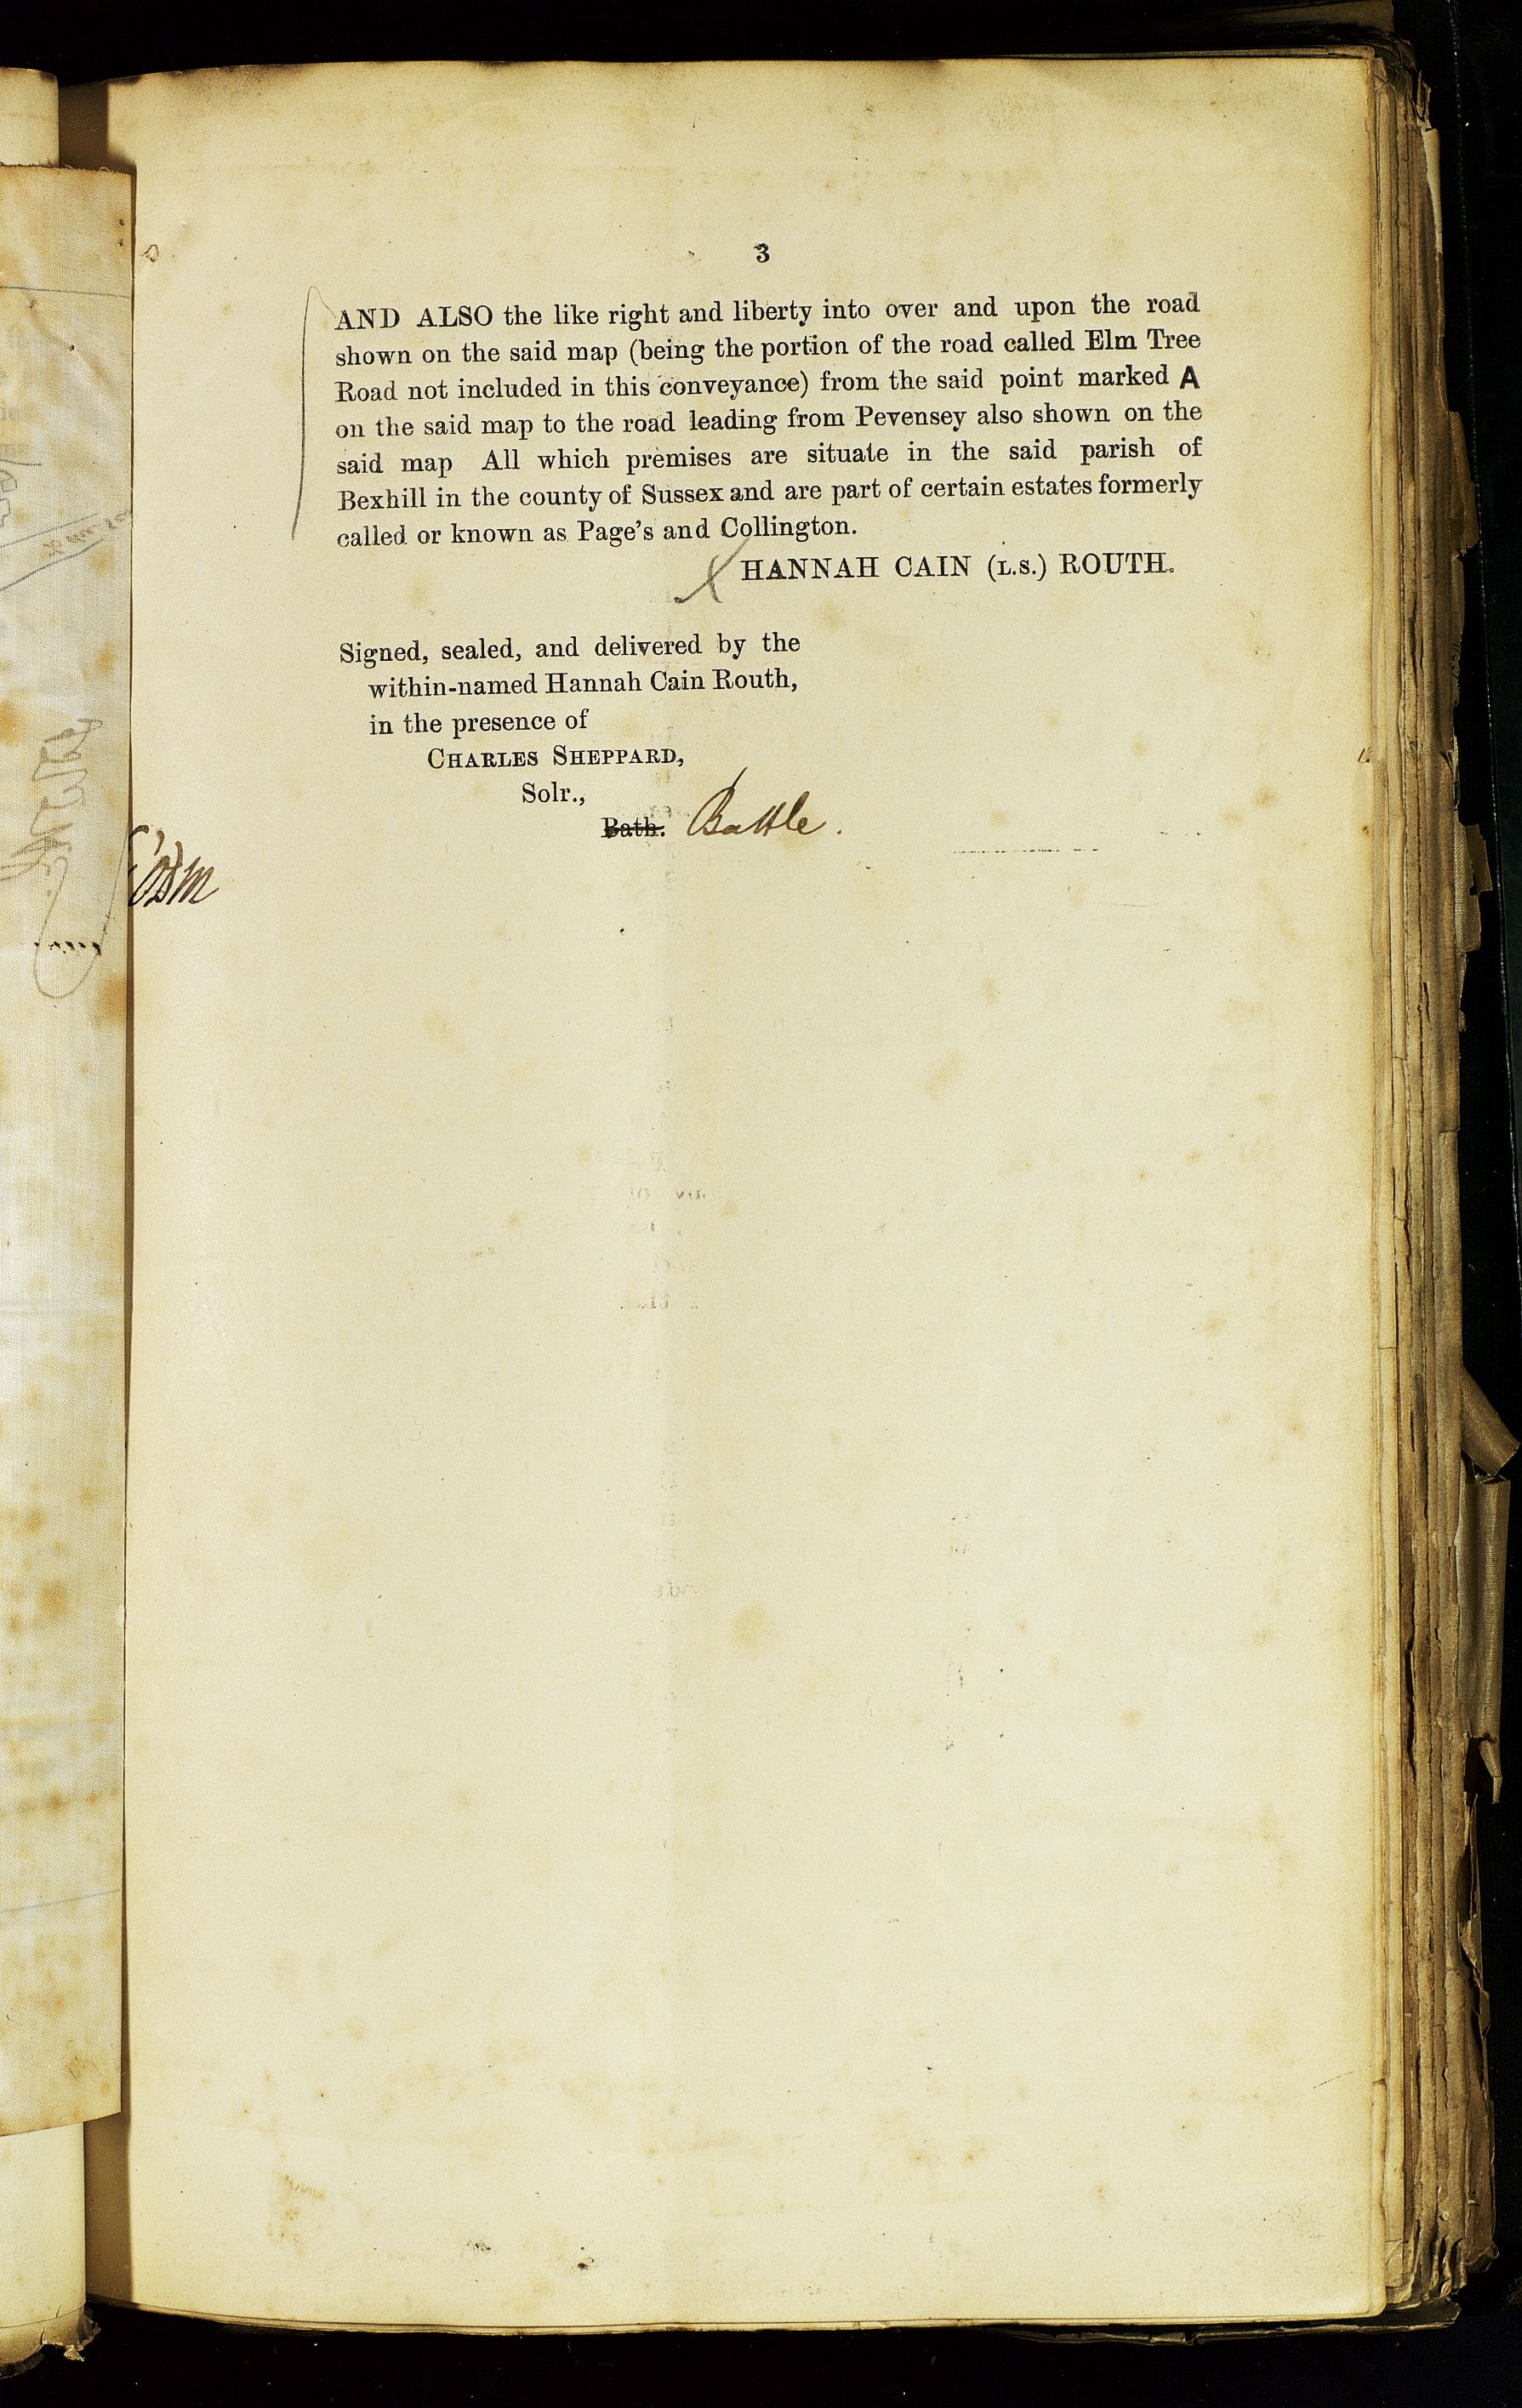 3
AND ALSO the like right and liberty into over and upon the road
shown on the said map (being the portion of the road called Elm Tree
Road not included in this conveyance) from the said point marked A
on the said map to the road leading from Pevensey also shown on the
said map All which premises are situate in the said parish of
Bexhill in the county of Sussex and are part of certain estates formerly
called or known as Page's and Collington.
HANNAH CAIN (L.S.) ROUTH.
Signed, sealed, and delivered by the
within-named Hannah Cain Routh,
in the presence of
CHARLES SHEPPARD,
Solr.,
Bath. Battle.